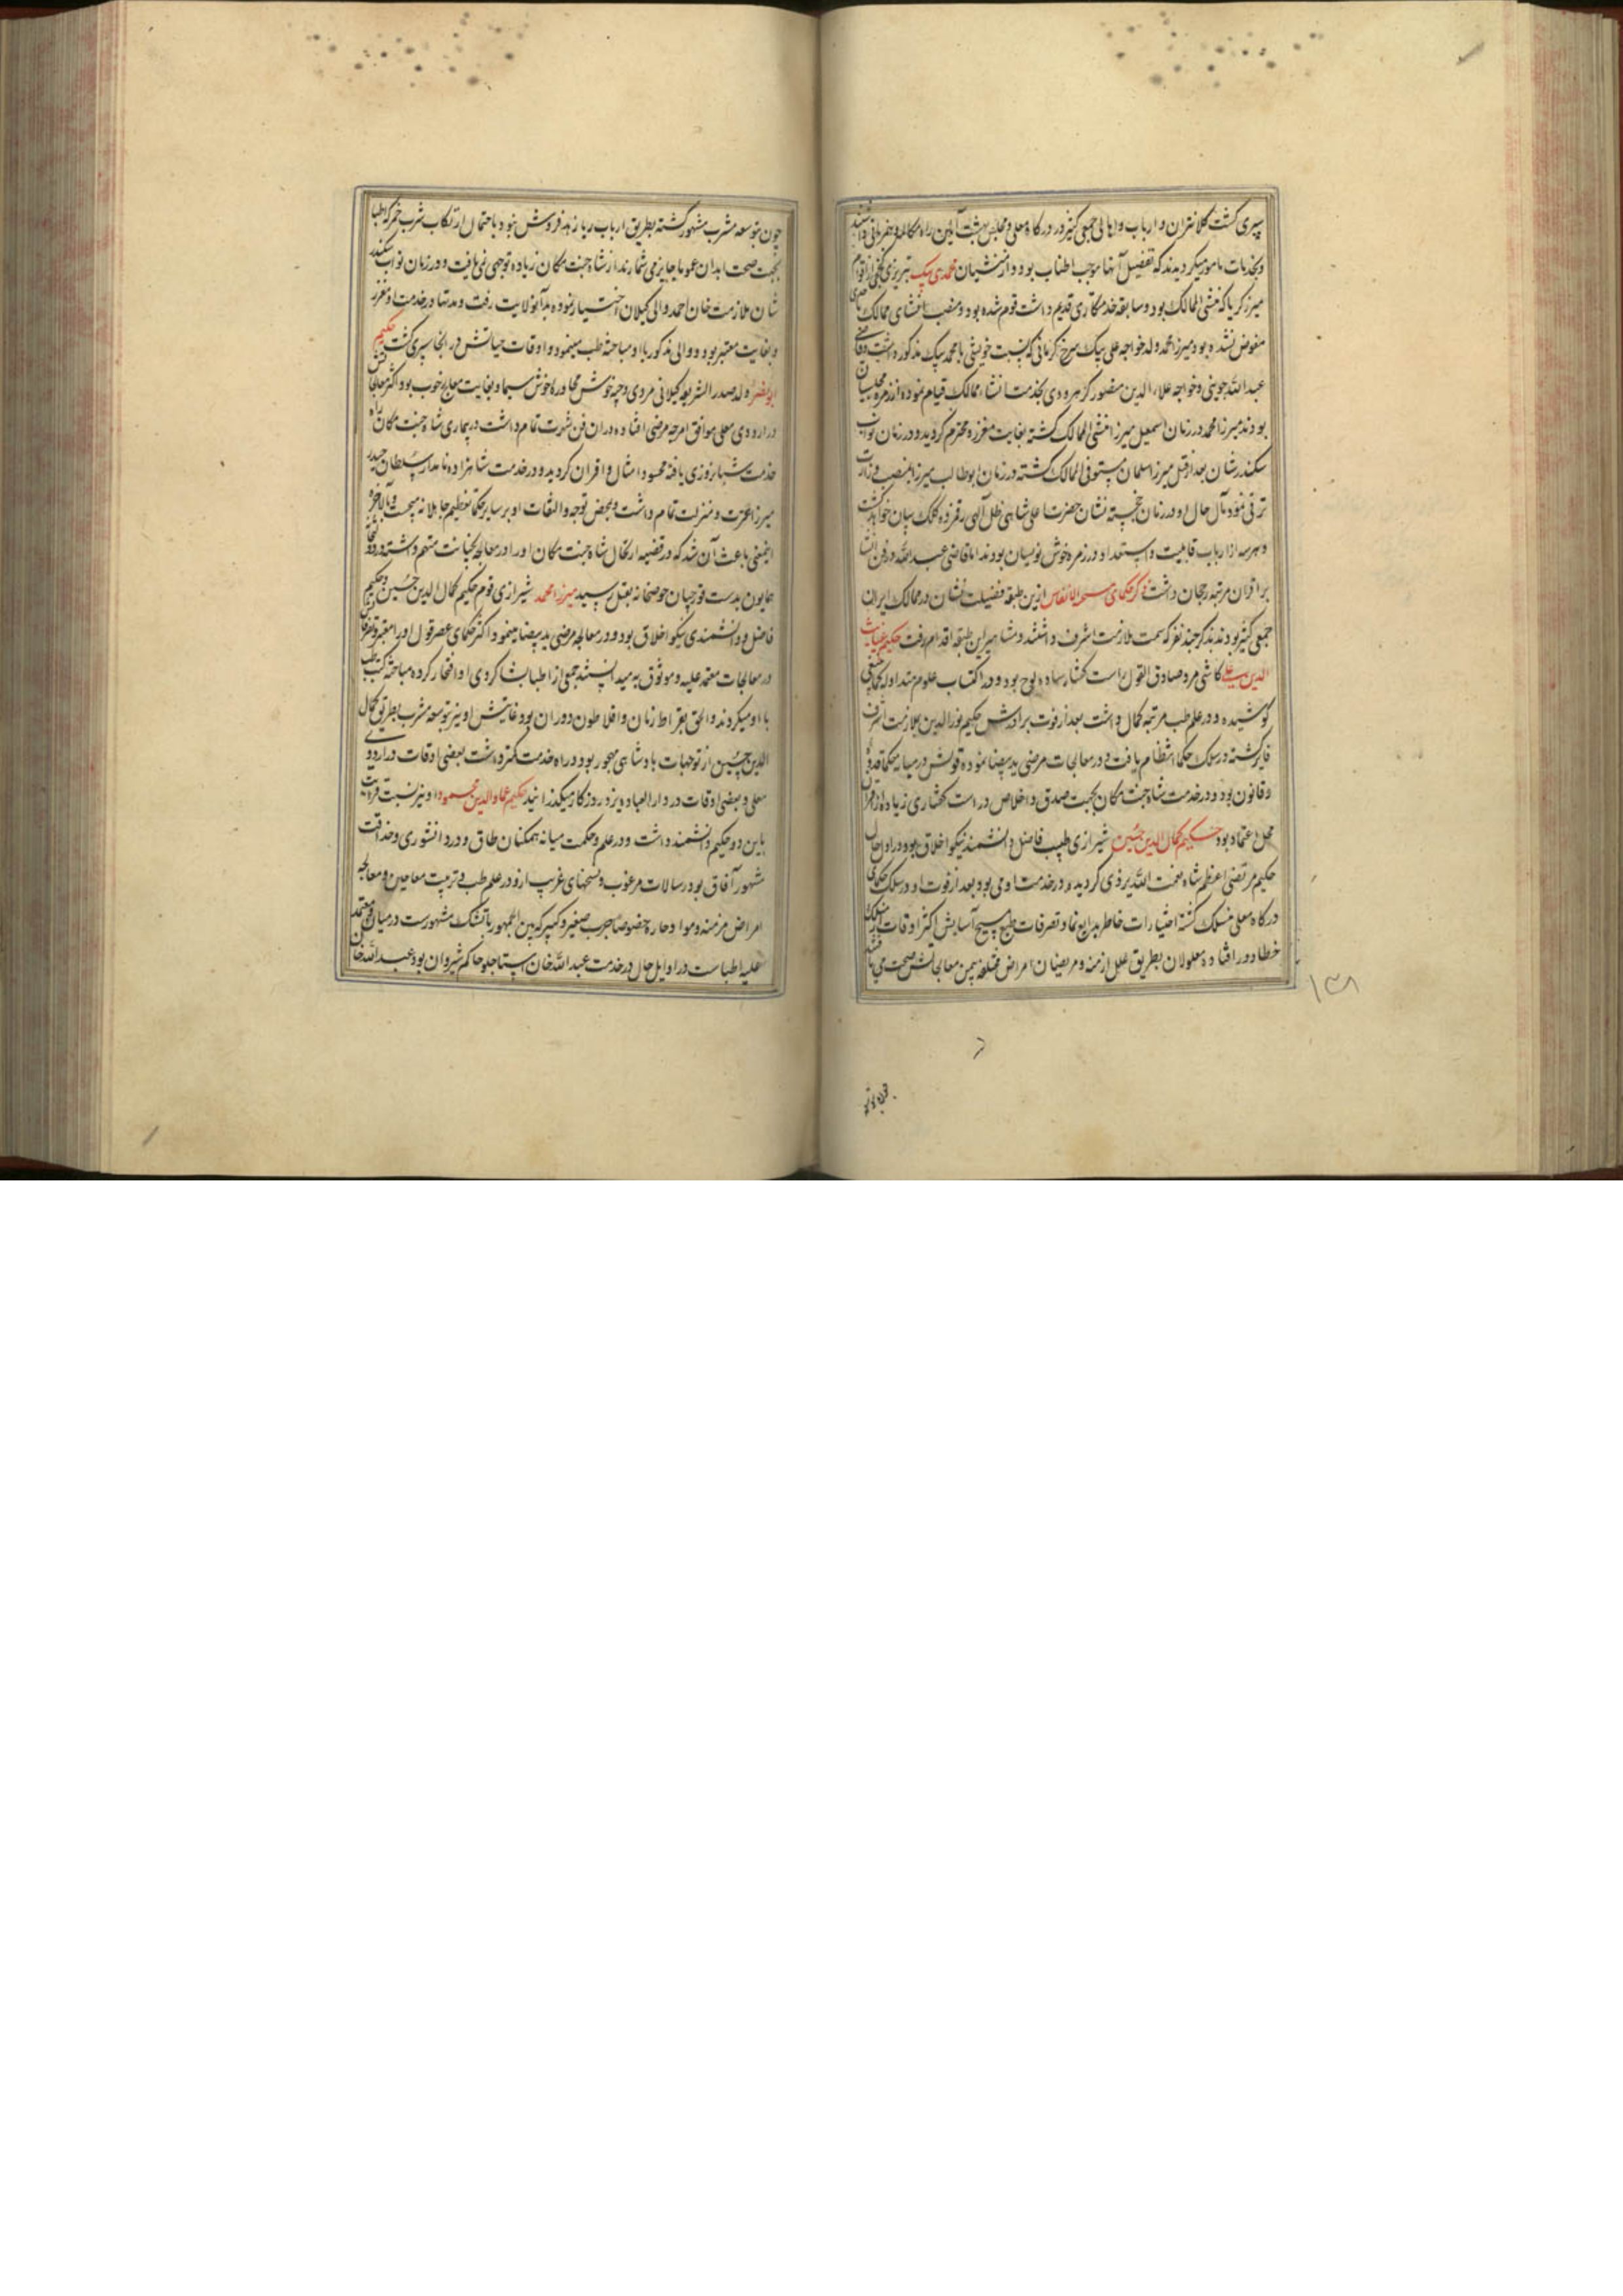 سپری گشت کلانتران و ارباب و اهالی جمعی کثیر در درگاه معلی و مجلس بهشت آئین راه مکالمه و همزبانی داشتند
و بخدمات مامور میگردیدند که تفصیل آنها موجب اطناب بود و از منشیان محمدی بیک تبریزی کججی از اقوام
میرزا کریا که منشی الممالک بود و سابقه خدمتکاری قدیم داشت قوم شده بود و منصب انشای ممالک
مفوض نشده بود میرزا محمد ولد خواجه علی بیک سرخ کرمانی که نسبت خویشی با محمد بیک مذکور داشت و قاضی
عبد الله جوینی و خواجه علاء الدین منصور کرهرودی بخدمت انشاء ممالک قیام نموده از زمره مجلسیان
بودند میرزا محمد در زمان اسمعیل میرزا منشی الممالک گشته بغایت معزز و محترم گردید و در زمان نواب
سکندر شان بعد از قتل میرزا سلمان مستوفی الممالک گشته در زمان ابوطالب میرزا بمنصب وزارت
ترقی نمود مآل حال او در زمان خجسته نشان حضرت اعلی شاهی ظل الهی رقم زده کلک بیان خواهد گشت
و هر سه از ارباب قابلیت و استعداد و در زمره خوش نویسان بودند اما قاضی عبد الله در فن انشا
بر اقران مرتبه رجحان داشت ذکر حکمای مسیح الانفاس ازین طبقه فضیلت نشان در ممالک ایران
جمعی کثیر بودند بذکر چند نفر که سمت ملازمت اشرف داشتند و مشاهیر این طبقه اقدام رفت حکیم غیاث
الدین علی کاشی مرد صادق القول راست گفتار ساده لوح بود و در اکتساب علوم متداوله حکمی
کوشیده و در علم طب مرتبه کمال داشت بعد از فوت برادرش حکیم نور الدین بملازمت اشرف
فایز گشته در سلک حکما انتظام یافت و در معالجات مرضی ید بیضا نموده قولش در میان حکما قدوه
و قانون بود و در خدمت شاه جنت مکان بجهت صدق و اخلاص و راست گفتاری زیاده از اقران
محل اعتماد بود حکیم کمال الدین حسین شیرازی طبیب فاضل دانشمند نیکو اخلاق بود در اوایل حال
حکیم مرتضی اعظم شاه نعمت الله یزدی گردیده در خدمت او می بود و بعد از فوت او در سلک حکمای
درگاه معلی منسلک گشته اختیارات خاطر بدایع نما و تصرفات طبع مسیح آسایش اکثر اوقات
خطا دور افتاده معلولان بطریق علل ازمنه و مریضان امراض مختلفه بیمن معالجاتش صحت می یافتند
چون بتوسعه مشرب مشهور گشته بطریق ارباب ریا زهد فروش نبود باحتمال ارتکاب شرب خمر که اطبا
بجهت صحت ابدان عموما جایز می شمارند از شاه جنت مکان زیاده توجهی نمی یافت و در زمان نواب سکندر
شان ملازمت خان احمد والی گیلان اختیار نموده بدآنولایت رفت و مدتها در خدمت او معزز
و بغایت معتبر بود و والی مذکور با او مباحثه طب مینمود و اوقات حیاتش در آنجا سپری گشت حکیم
ابونصر ولد صدر الشریعه گیلانی مردی وجیه خوش محاوره خوش سیما و بغایت معالجه خوب بود اکثر معالجاتش
در اردوی معلی موافق امزجه مرضی افتاده در ان فن شهرت تمام داشت در بیماری شاه جنت مکان راه
خدمت شبانه روزی یافته محسود امثال و اقران گردید و در خدمت شاهزاده نامدار سلطان حیدر
میرزا عزت و منزلت تمام داشت و بمحض توجه و التفات او بر سایر حکما تعظیم جاهلانه میجست و بالاخره
اینمعنی باعث آن شد که در قضیه ارتحال شاه جنت مکان او را در معالجه بخیانت متهم داشته در دولتخانه
همایون بدست قورچیان حوضخانه بقتل رسید میرزا محمد شیرازی قوم حکیم کمال الدین حسین و حکیم
فاضل و دانشمندی نیکو اخلاق بود و در معالجه مرضی ید بیضا مینمود اکثر حکمای عصر قول او را معتبر
در معالجات معتمد علیه و موثوق به میدانستند جمعی از اطبا شاگردی او افتخار کرده مباحثه کتب طب
با او میکردند و الحق بقراط زمان و افلاطون دوران بود غایتش او نیز بتوسعه مشرب بطریق کمال
الدین حسین از توجهات پادشاهی مهجور بود و راه خدمت کمتر داشت بعضی اوقات در اردوی
معلی و بعضی اوقات در دار العباده یزد روزگار میگذرانید حکیم عماد الدین محمود او نیز نسبت قرابت
باین دو حکیم دانشمند داشت و در علم و حکمت میانه همکنان طاق و در دانشوری و حذاقت
مشهور آفاق بود رسالات مرغوب و نسخهای غریب ازو در علم طب و ترتیب معاجین و معالجه
امراض مزمنه و مواد حاره خصوصا جرب صغیر و کبیر که بین الجمهور باتشک مشهورست در میان معتمد
علیه اطباست در اوایل حال در خدمت عبد الله خان استاجلو حاکم شیروان بود عبد الله خان
۱۳۸